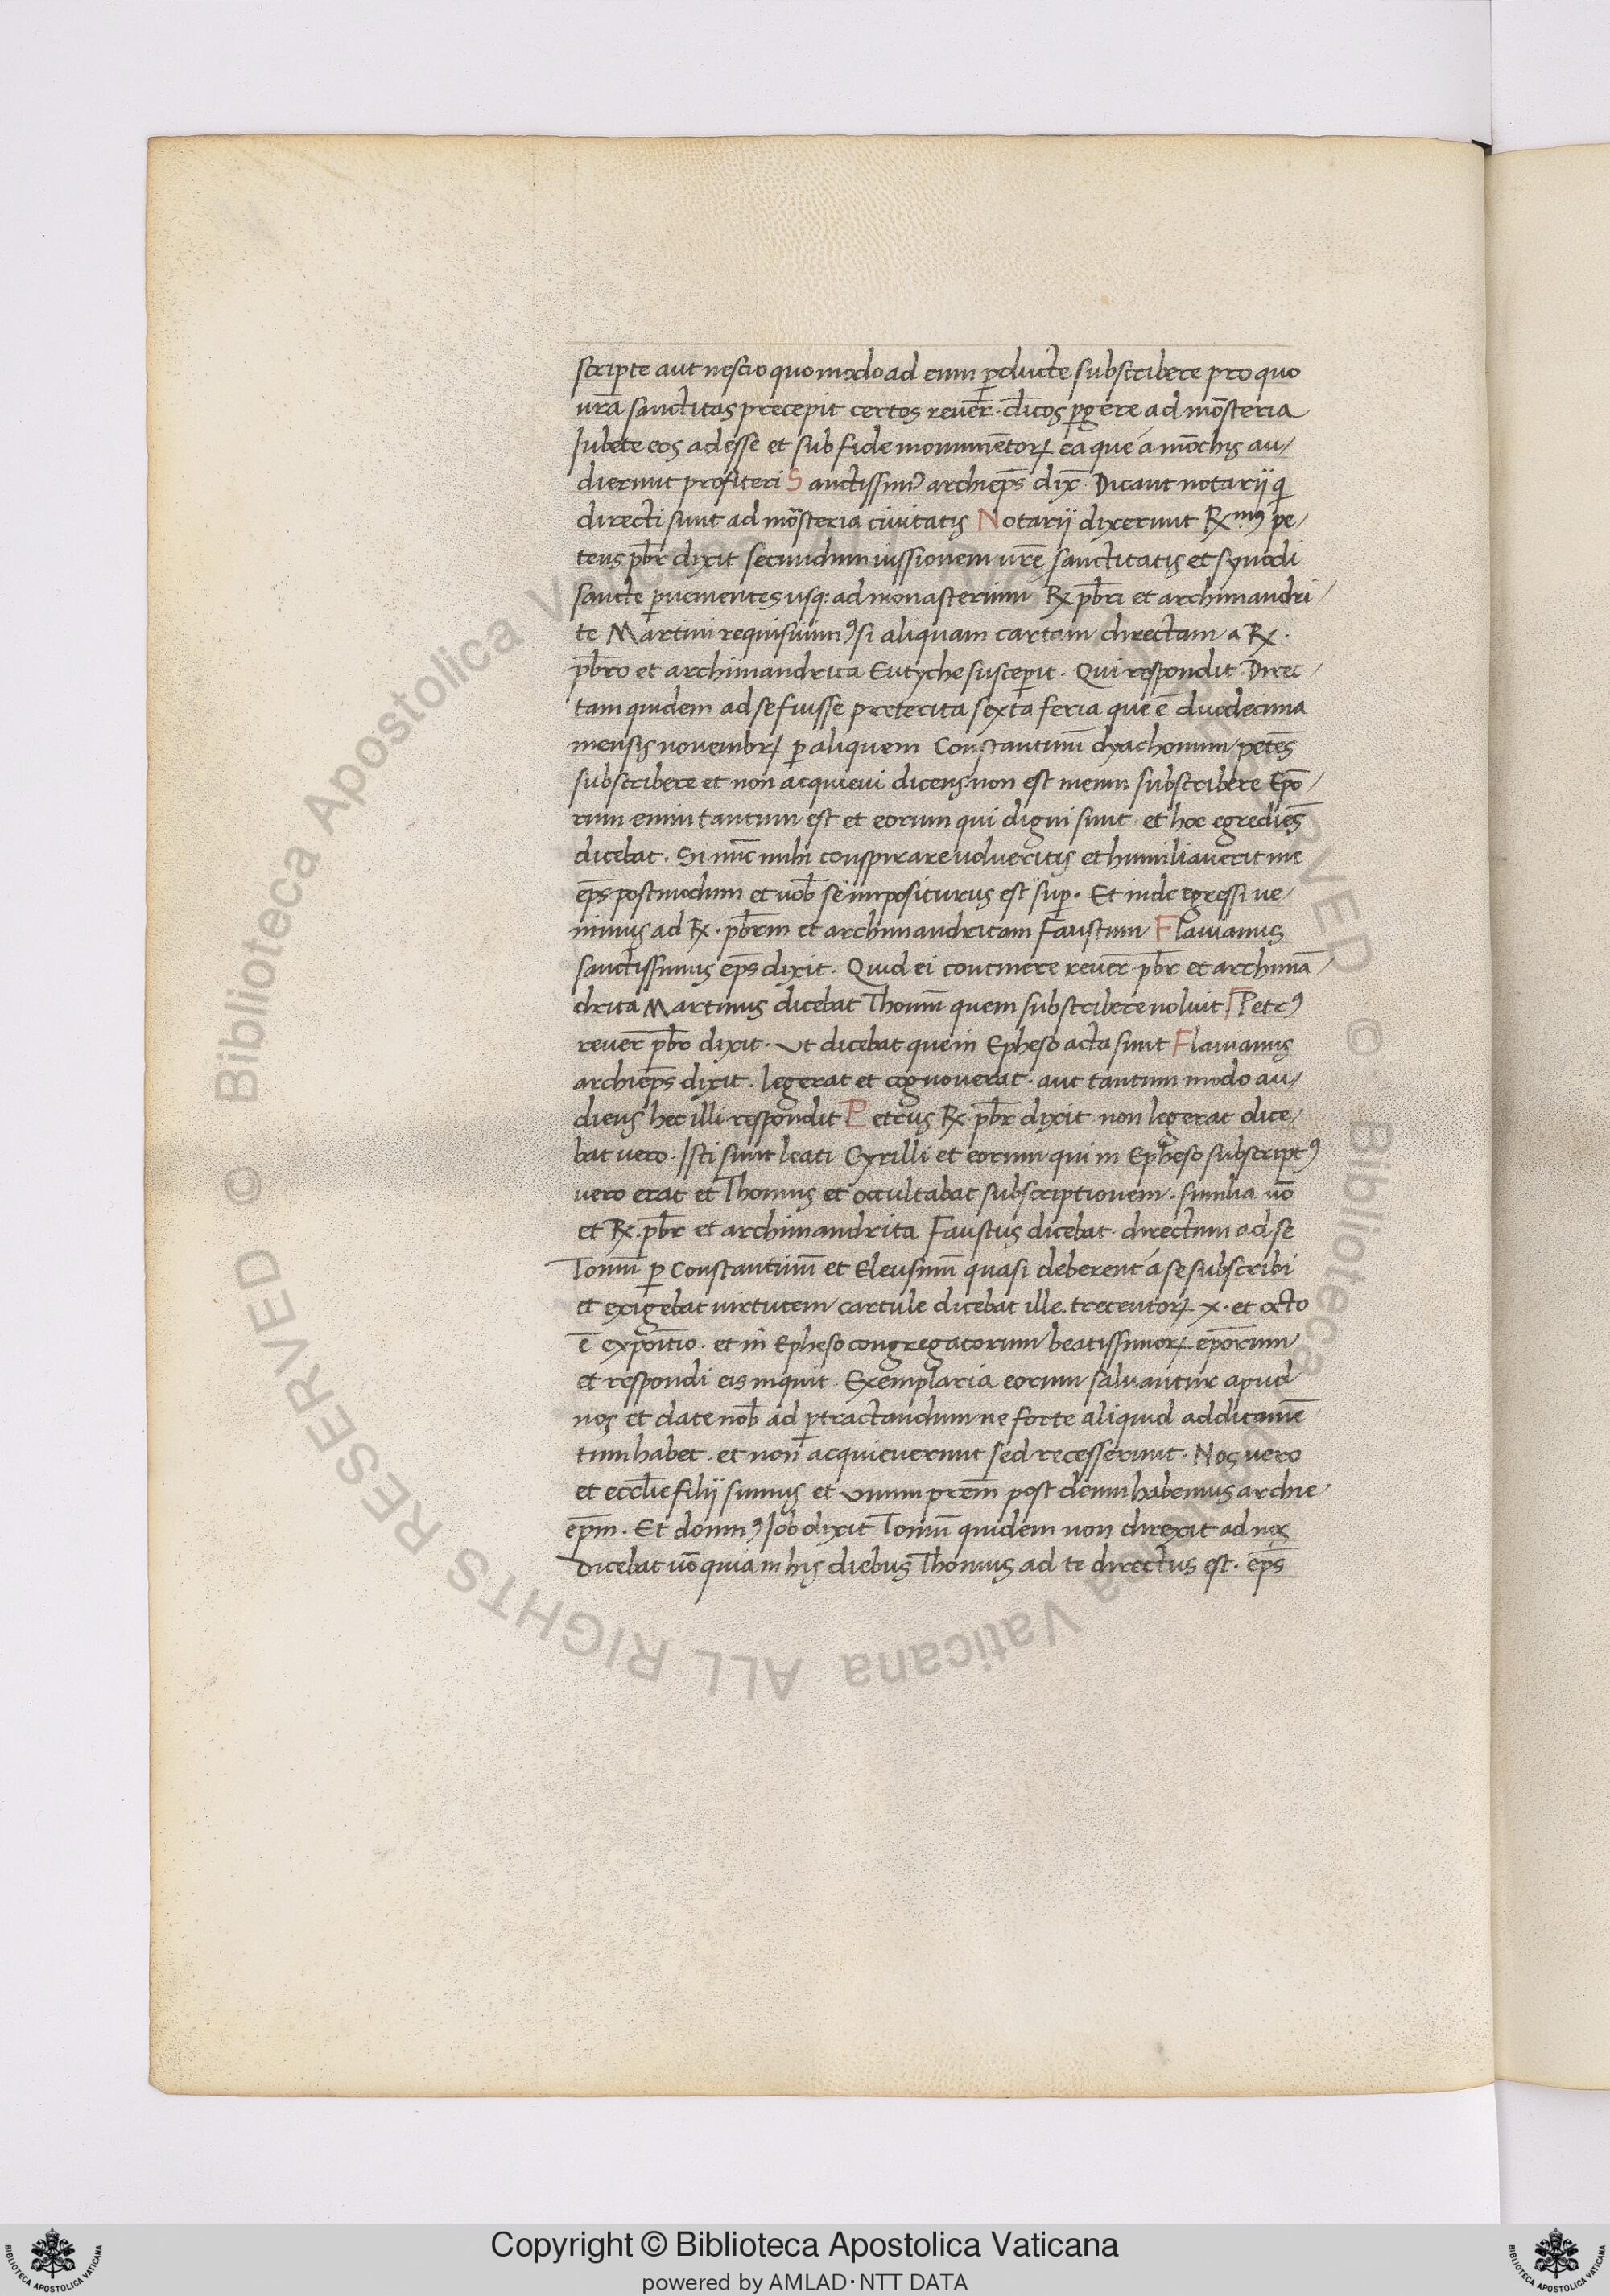 scripte aut nescio quo modo ad eum ꝑducte subscribere pro quo
vr̄a sanctitas precepit certos reuer̄. cl̄icos ꝑgere ad mōsteria
Iubete eos adesse et sub fide monumētoꝝ ea que á mōchis au/
dierunt profiteri Sanctissimꝰ archiep̄s dix̄. Dicant notarij q̄
directi sunt ad mōsteria ciuitatis Notarij dixerunt R̄xmꝰ pe/
teus pb̄r dixit secundum iussionem vr̄e sanctitatis et synodi
sancte ꝑuenientes usqꝫ ad monasterium Rx pb̄ri et archimandri/
te Martini requisiuimꝰ si aliquam cartam directam a Rx.
pb̄ro et archimandrita Eutyche suscepit. Qui respondit Direc/
tam quidem ad se fuisse preterita sexta feria que ē duodecima
mensis nouembꝝ ꝑ aliquem Constantinū dyachonum petēs
subscribere et non acquieui dicens non est meum subscribere Epō/
rum enim tantum est et eorum qui digni sunt. et hoc egrediēs
dicebat. Si nūc mihi conspirare uolueritis et humiliauerit me
ep̄s postmodum et uob̄ se impositurus est suꝑ. Et inde egressi ue/
nimus ad Rx. pb̄rm et archimandritam Faustum Flauianus
sanctissimus ep̄s dixit. Quid ei continere reuer̄ pb̄r et archimā/
drita Martinus dicebat Thomū quem subscribere noluit Petrꝰ
reuer̄ pb̄r dixit. Vt dicebat que in Epheso acta sunt Flauianus
archiep̄s dixit. legerat et cognouerat. aut tantum modo au/
diens hec illi respondit Petrus Rx pb̄r dixit non legerat dice/
bat vero. Isti sunt beati Cyrilli et eorum qui in Epheso subscriptꝰ
vero erat et Thomus et occultabat subscriptionem. similia uō
et Rx. pb̄r et archimandrita Faustus dicebat. directum ad se
Tomū ꝑ Constantinū et Eleusinū quasi deberent á se subscribi
et exigebat uirtutem cartule dicebat ille. trecentoꝝ x. et octo
ē expōitio. et in Epheso congregatorum beatissimoꝝ ep̄orum
et respondi eis inquit. Exemplaria eorum saluantur apud
nos et date nob̄ ad ꝑtractandum ne forte aliquid additamē
tum habet. et non acquieuerunt sed recesserunt. Nos vero
et eccl̄ie filij sumus et vnum prēm post deum habemus archie
ep̄m. Et domnꝰ Iob dixit Tomū quidem non direxit ad nos
Dicebat uō quia in his diebus Thomus ad te directus est. ep̄s
© Biblioteca Apostolica Vaticana ALL RIGHTS RESERVED © Biblioteca Apostolica Vaticana ALL RIGHTS RESERVED
Copyright © Biblioteca Apostolica Vaticana
powered by AMLAD·NTT DATA
BIBLIOTECA APOSTOLICA VATICANA
BIBLIOTECA APOSTOLICA VATICANA